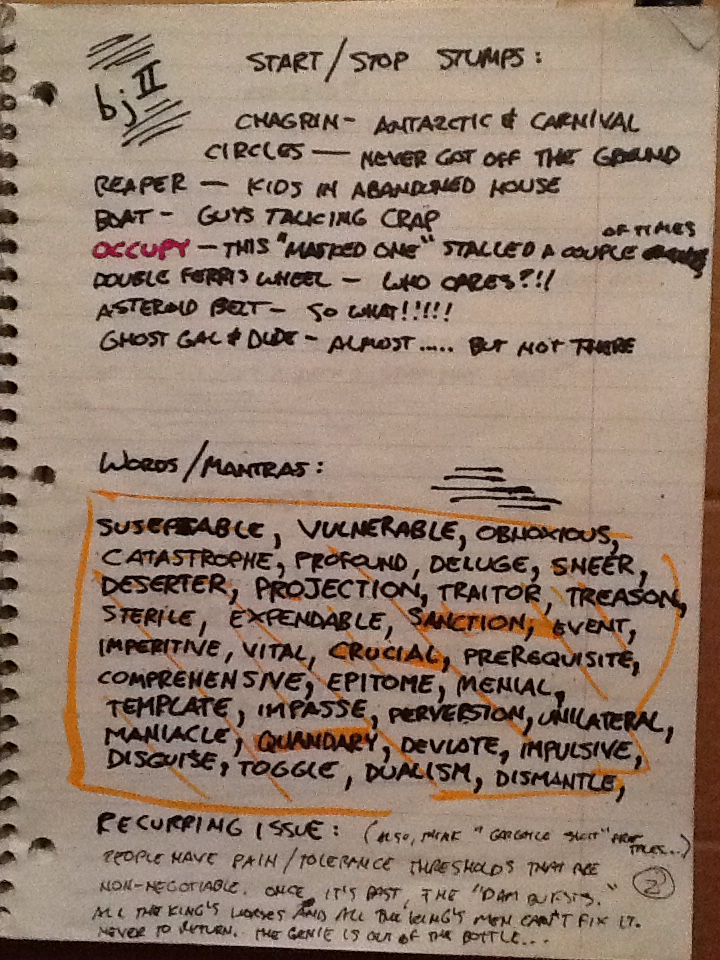 START/STOP STUMPS:
bj II
CHAGRIN - ANTARCTIC & CARNIVAL
CIRCLES — NEVER GOT OFF THE GROUND
REAPER — KIDS IN ABANDONED HOUSE
BOAT - GUYS TALKING CRAP
OF TIMES
OCCUPY - THIS "MASKED ONE" STALLED A COUPLE
DOUBLE FERRIS WHEEL - WHO CARES?!!
ASTEROID BELT - SO WHAT!!!!!
GHOST GAL & DUDE - ALMOST..... BUT NOT THERE
WORDS/MANTRAS:
SUSEPTABLE, VULNERABLE, OBNOXIOUS,
CATASTROPHE, PROFOUND, DELUGE, SNEER,
DESERTER, PROJECTION, TRAITOR, TREASON,
STERILE, EXPENDABLE, SANCTION, EVENT,
IMPERITIVE, VITAL, CRUCIAL, PREREQUISITE,
COMPREHENSIVE, EPITOME, MENIAL,
TEMPLATE, IMPASSE, PERVERSION, UNILATERAL,
MANIACLE, QUANDARY, DEVIATE, IMPULSIVE,
DISGUISE, TOGGLE, DUALISM, DISMANTLE,
RECURRING ISSUE: (ALSO, THINK "GARGOYLE
TALES...)
PEOPLE HAVE PAIN/TOLERANCE THRESHOLDS THAT ARE
NON-NEGOTIABLE. ONCE IT'S PAST, THE "DAM BURSTS."
2
ALL THE KING'S HORSES AND ALL THE KING'S MEN CAN'T FIX IT.
NEVER TO RETURN. THE GENIE IS OUT OF THE BOTTLE...